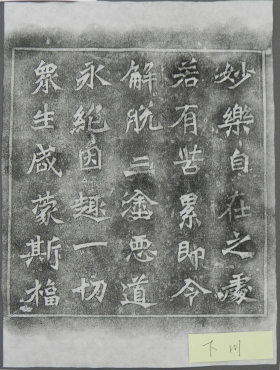 妙樂自在之處
若有苦累即令
解脫三塗惡道
永絕因趣一切
衆生咸蒙斯福
下川